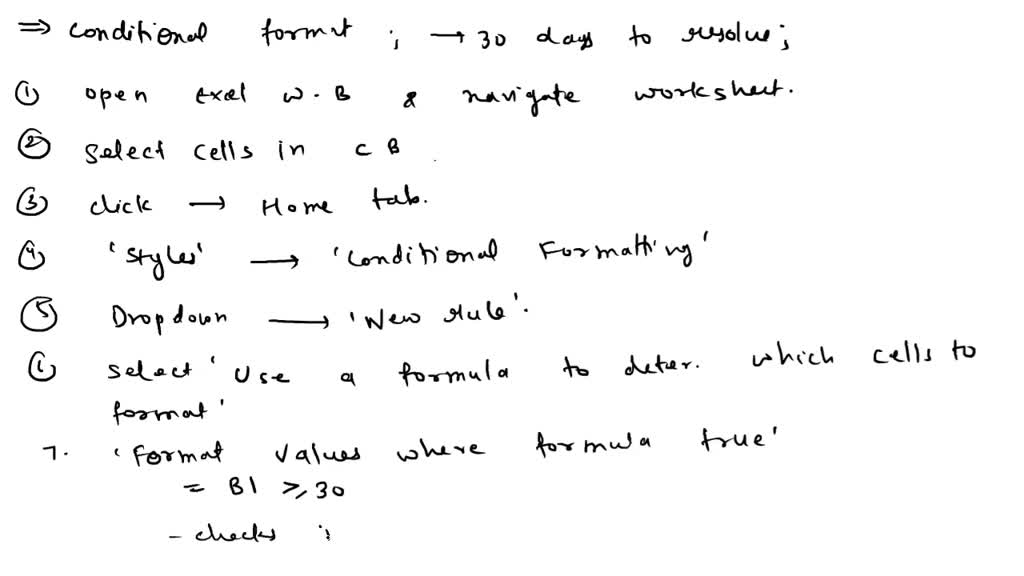 ⇒ Conditional format ; → 30 days to resolve ;
① open excel W.B & navigate worksheet.
② select cells in C B
③ click → Home tab.
④ 'Styles' → 'Conditional Formatting'
⑤ Dropdown → 'New Rule'.
⑥ select 'Use a formula to deter. which cells to
format'
7. 'Format values where formula true'
= B1 ≥ 30
- checks i